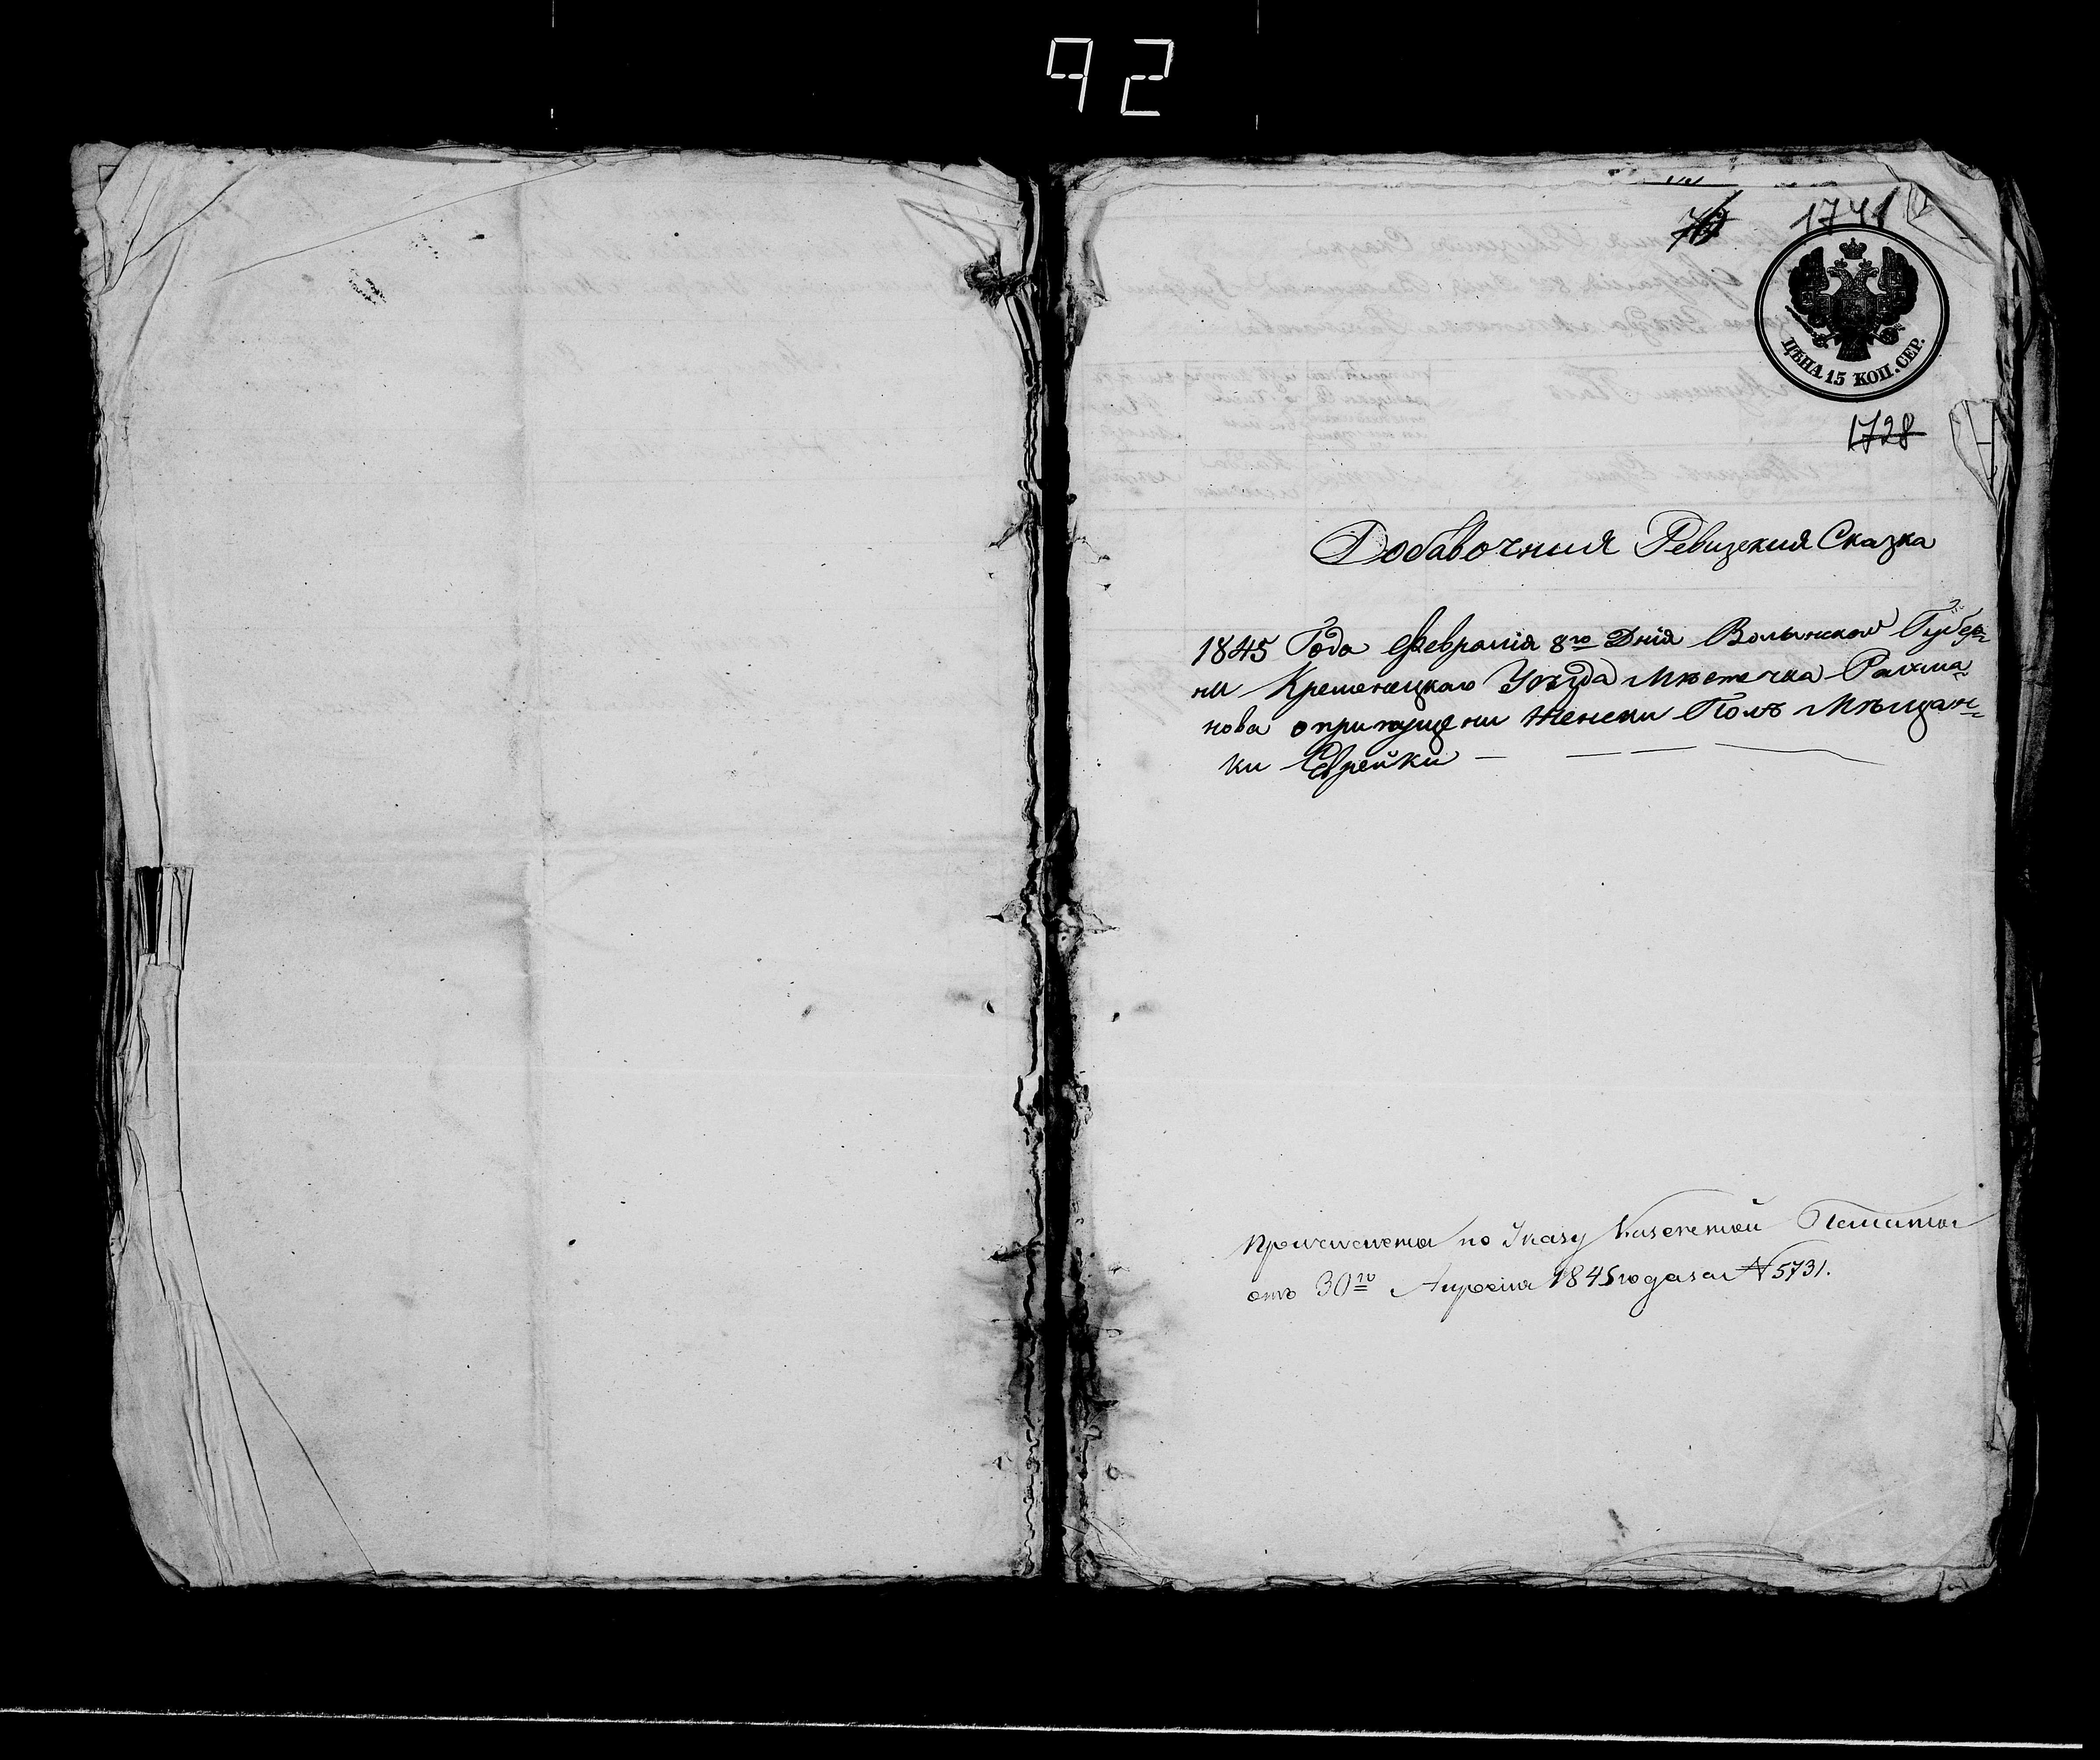 92
1741
ЦѢНА 15 КОП. СЕР.
1728
Добавочния Ревизския Сказка
1845 Года Февралія 8го Днія Волынской Губер-
ни Кременецкаго Уѣзда Мѣстечка Рахма-
нова о припущени Женски Полъ Мѣщан-
ки Еврейки
Причислена по Указу Казенной Палаты
отъ 30го Апрѣля 1845 года за № 5731.